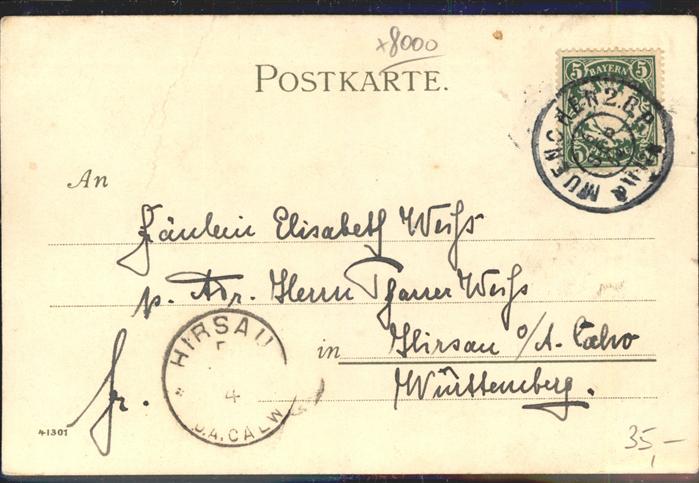 x8000
POSTKARTE.
5 BAYERN 5
MUENCHEN 2. B.P.
An
Fräulein Elisabeth Weiß
p. Adr. Herrn Pfarrer Weiß
in Hirsau O/A. Calw
Württemberg.
fr.
HIRSAU
4
O.A. CALW
41301
35,-